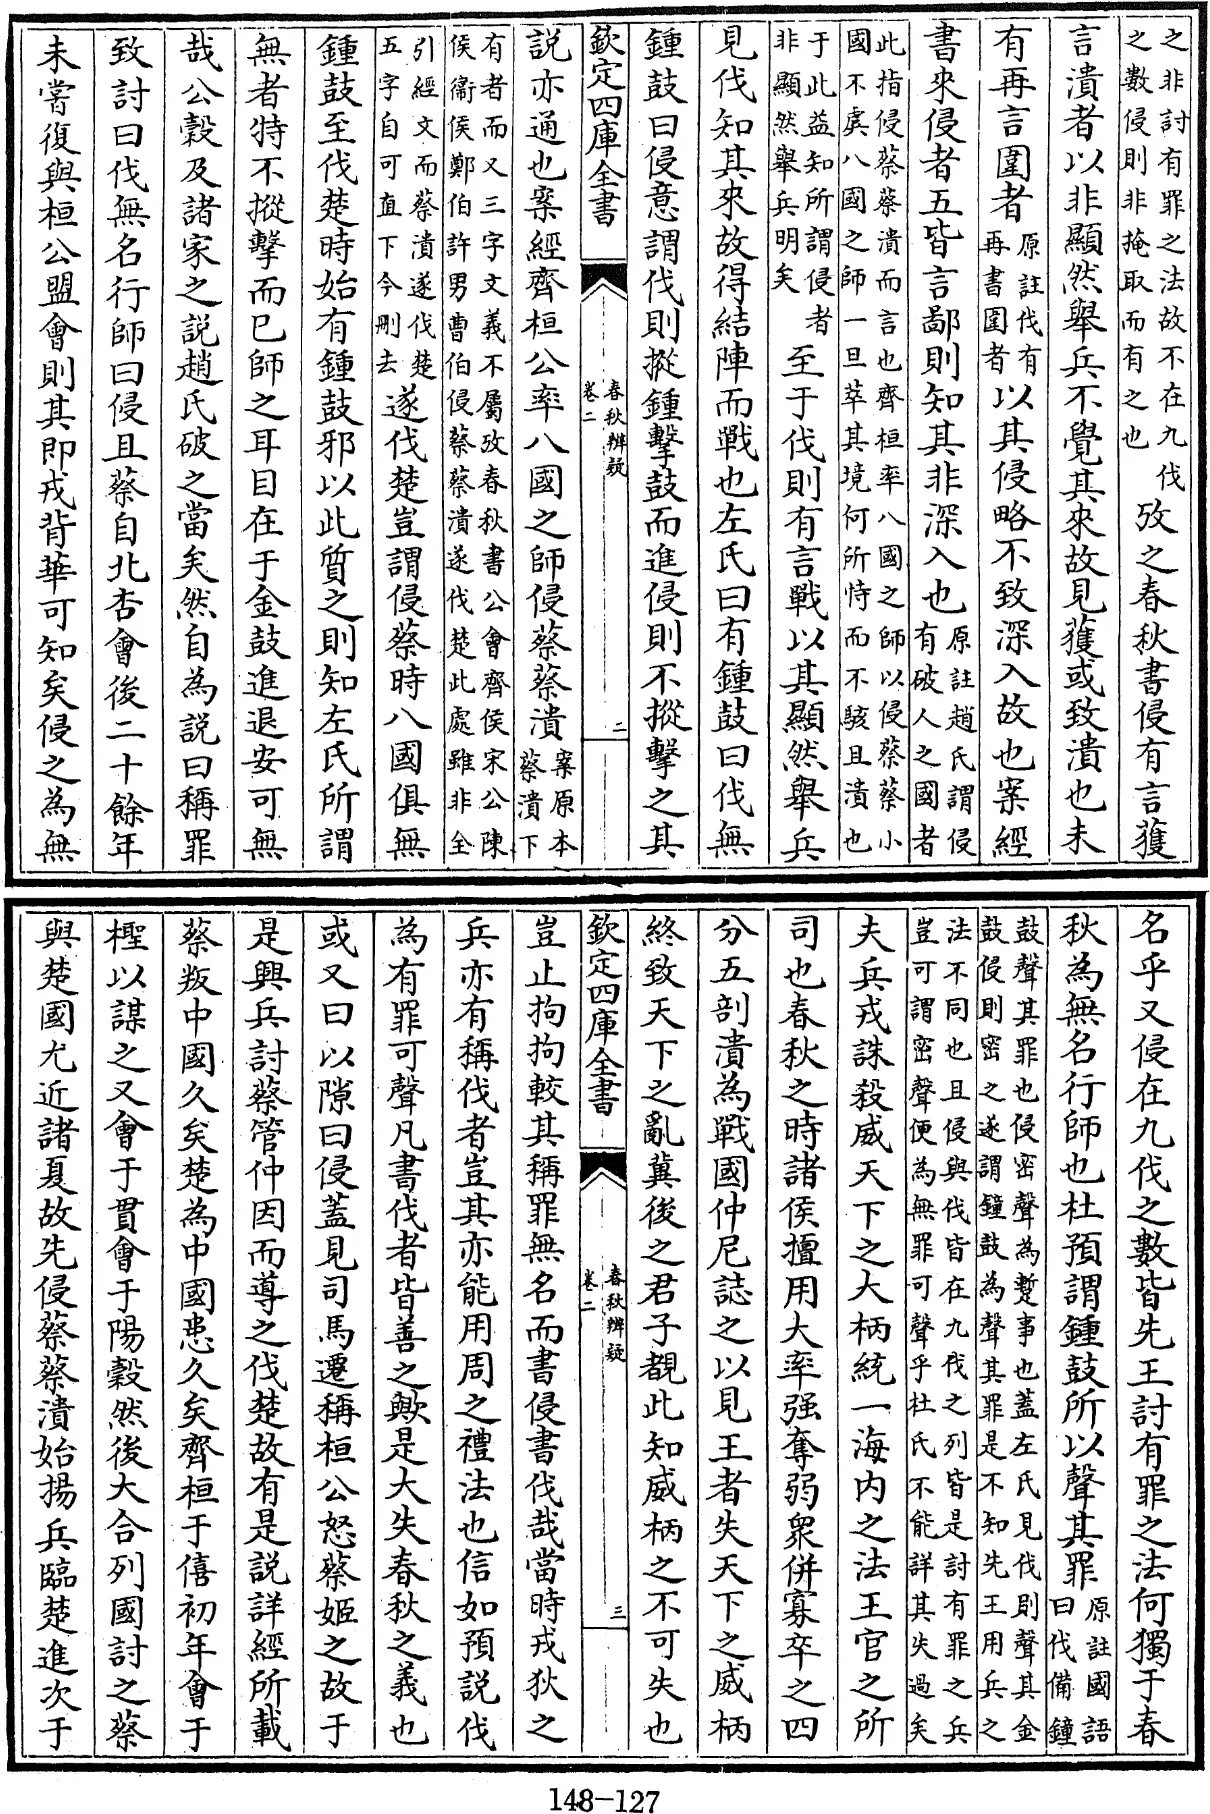 之非討有罪之法故不在九伐
之數侵則非掩取而有之也
攷之春秋書侵有言獲
言潰者以非顯然舉兵不覺其來故見獲或致潰也未
有再言圍者
原註伐有
再書圍者
以其侵略不致深入故也案經
書來侵者五皆言鄙則知其非深入也
原註趙氏謂侵
有破人之國者
此指侵蔡蔡潰而言也齊桓率八國之師以侵蔡蔡小
國不虞八國之師一旦萃其境何所恃而不駭且潰也
于此益知所謂侵者
非顯然舉兵明矣
至于伐則有言戰以其顯然舉兵
見伐知其來故得結陣而戰也左氏曰有鍾鼓曰伐無
鍾鼓曰侵意謂伐則摐鍾擊鼓而進侵則不摐擊之其
欽定四庫全書
春秋辨疑
卷二
二
説亦通也案經齊桓公率八國之師侵蔡蔡潰
案原本
蔡潰下
有者而又三字文義不屬攷春秋書公會齊侯宋公陳
侯衞侯鄭伯許男曹伯侵蔡蔡潰遂伐楚此處雖非全
引經文而蔡潰遂伐楚
五字自可直下今刪去
遂伐楚豈謂侵蔡時八國俱無
鍾鼓至伐楚時始有鍾鼓邪以此質之則知左氏所謂
無者特不摐擊而已師之耳目在于金鼓進退安可無
哉公穀及諸家之説趙氏破之當矣然自為説曰稱罪
致討曰伐無名行師曰侵且蔡自北杏會後二十餘年
未嘗復與桓公盟會則其即戎背華可知矣侵之為無
名乎又侵在九伐之數皆先王討有罪之法何獨于春
秋為無名行師也杜預謂鍾鼓所以聲其罪
原註國語
曰伐備鐘
鼓聲其罪也侵密聲為蹔事也蓋左氏見伐則聲其金
鼓侵則密之遂謂鐘鼓為聲其罪是不知先王用兵之
法不同也且侵與伐皆在九伐之列皆是討有罪之兵
豈可謂密聲便為無罪可聲乎杜氏不能詳其失過矣
夫兵戎誅殺威天下之大柄統一海内之法王官之所
司也春秋之時諸侯擅用大率强奪弱衆併寡卒之四
分五剖潰為戰國仲尼誌之以見王者失天下之威柄
終致天下之亂冀後之君子覩此知威柄之不可失也
欽定四庫全書
春秋辨疑
卷二
三
豈止拘拘較其稱罪無名而書侵書伐哉當時戎狄之
兵亦有稱伐者豈其亦能用周之禮法也信如預説伐
為有罪可聲凡書伐者皆善之歟是大失春秋之義也
或又曰以隙曰侵蓋見司馬遷稱桓公怒蔡姬之故于
是興兵討蔡管仲因而導之伐楚故有是説詳經所載
蔡叛中國久矣楚為中國患久矣齊桓于僖初年會于
檉以謀之又會于貫會于陽穀然後大合列國討之蔡
與楚國尤近諸夏故先侵蔡蔡潰始揚兵臨楚進次于
148-127